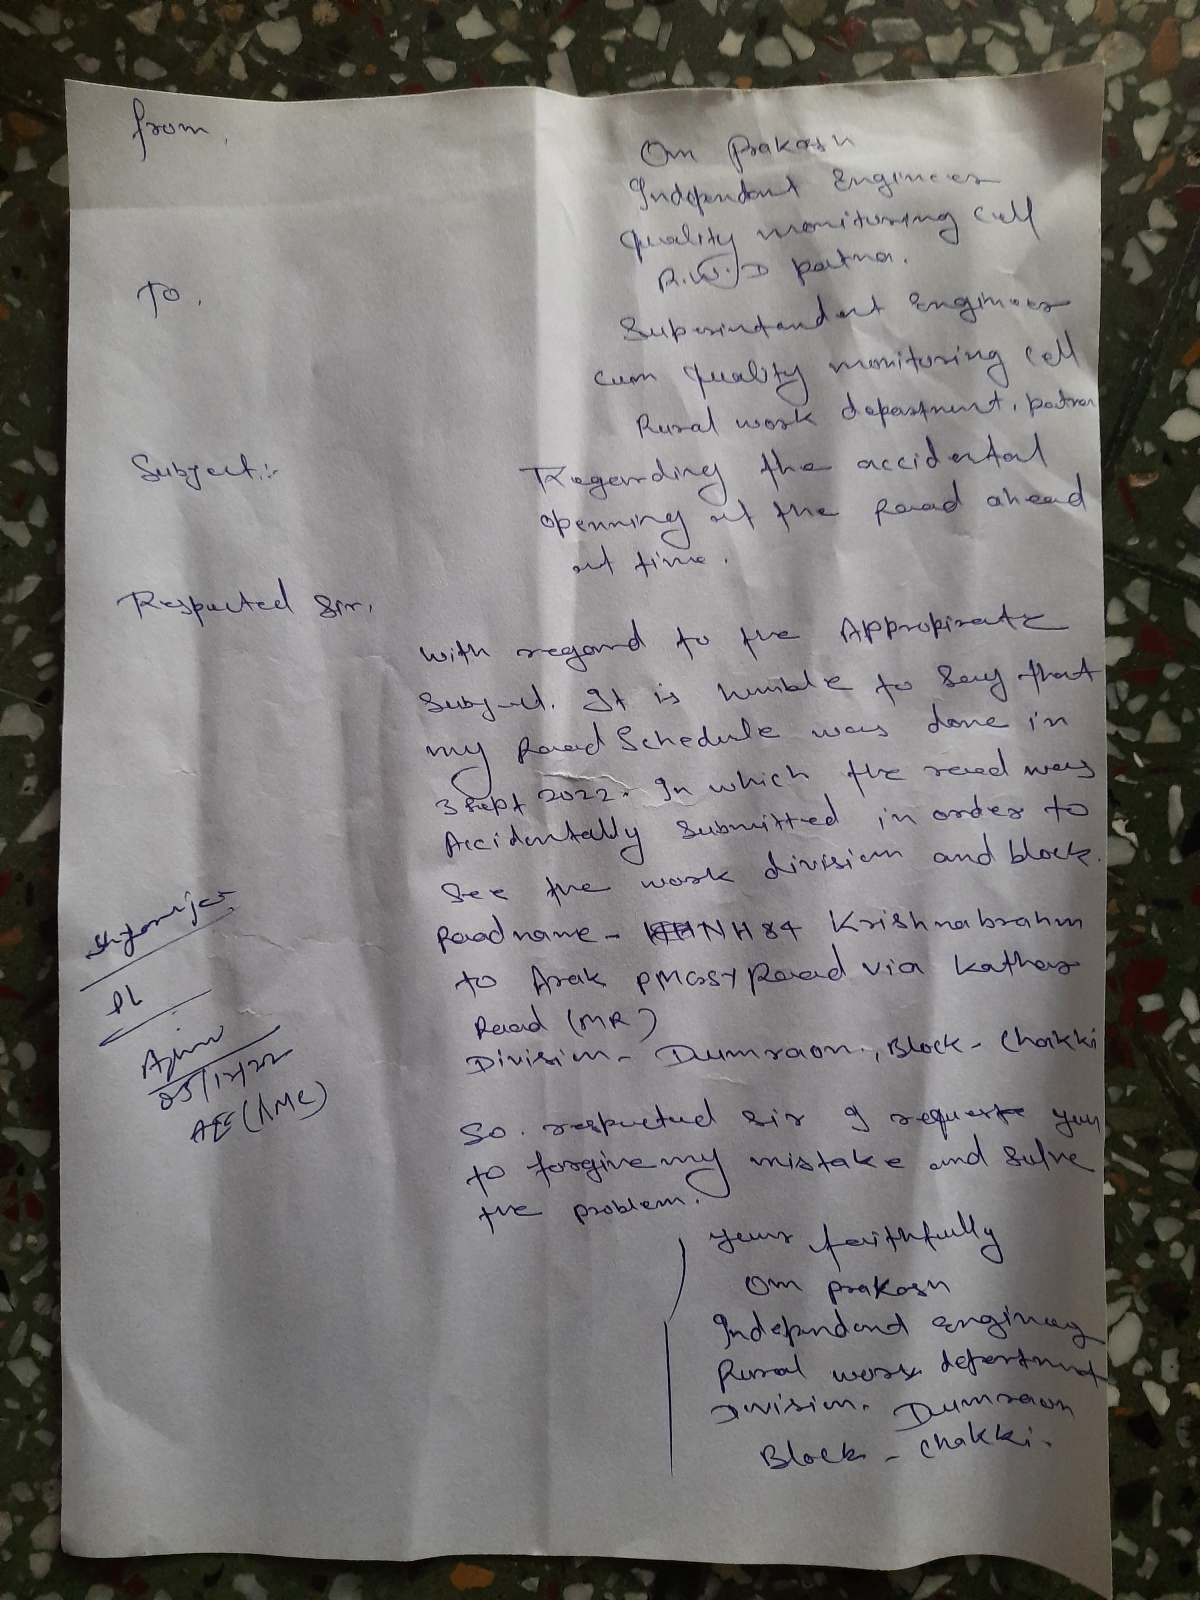 from,
Om Prakash
Independant Engineer
Quality monitoring Cell
R.W.D patna.
To,
Superintandent Engineer
cum Quality monitoring Cell
Rural work department, patna
Subject:-
Regarding the accidental
openning of the Road ahead
of time.
Respected Sir,
with regard to the Appropirate
Subject. It is humble to Say that
my Road Schedule was done in
3 Sept 2022. In which the road was
Accidentally Submitted in order to
See the work division and block.
Road name - NH 84 Krishnabrahm
to Arak PMGSY Road via Kathar
Road (MR)
Division - Dumraon, Block - Chakki
So. respected sir I requeste you
to forgive my mistake and Solve
the problem.
05/12/22
AEE (
Your faithfully
Om prakash
Independent Engineer
Rural work department
Division. Dumraon
Block - Chakki.